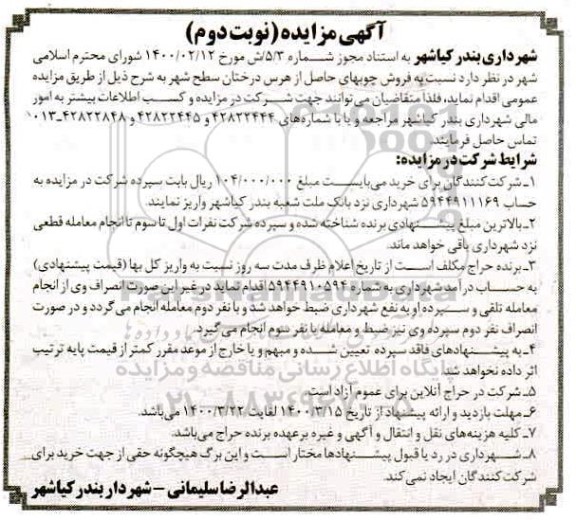 آگهی مزایده (نوبت دوم)
شهرداری بندر کیاشهر به استناد مجوز شماره ۵/۳/ش مورخ ۱۴۰۰/۰۲/۱۲ شورای محترم اسلامی
شهر در نظر دارد نسبت به فروش چوبهای حاصل از هرس درختان سطح شهر به شرح ذیل از طریق مزایده
عمومی اقدام نماید، فلذا متقاضیان می‌توانند جهت شرکت در مزایده و کسب اطلاعات بیشتر به امور
مالی شهرداری بندر کیاشهر مراجعه و یا با شماره‌های ۴۲۸۲۲۴۴۴ و ۴۲۸۲۲۴۴۵ و ۴۲۸۲۲۸۴۸-۰۱۳
تماس حاصل فرمایند.
شرایط شرکت در مزایده:
۱ـ شرکت‌کنندگان برای خرید می‌بایست مبلغ ۱۰۴/۰۰۰/۰۰۰ ریال بابت سپرده شرکت در مزایده به
حساب ۵۹۴۴۹۱۱۱۶۹ شهرداری نزد بانک ملت شعبه بندر کیاشهر واریز نمایند.
۲ـ بالاترین مبلغ پیشنهادی برنده شناخته شده و سپرده شرکت نفرات اول تا سوم تا انجام معامله قطعی
نزد شهرداری باقی خواهد ماند.
۳ـ برنده حراج مکلف است از تاریخ اعلام ظرف مدت سه روز نسبت به واریز کل بها (قیمت پیشنهادی)
به حساب درآمد شهرداری به شماره ۵۹۴۴۹۱۰۵۹۴ اقدام نماید در غیر این صورت انصراف وی از انجام
معامله تلقی و سپرده او به نفع شهرداری ضبط خواهد شد و با نفر دوم معامله انجام می‌گردد و در صورت
انصراف نفر دوم سپرده وی نیز ضبط و معامله با نفر سوم انجام می‌گیرد.
۴ـ به پیشنهادهای فاقد سپرده تعیین شده و مبهم و یا خارج از موعد مقرر کمتر از قیمت پایه ترتیب
اثر داده نخواهد شد.
۵ـ شرکت در حراج آنلاین برای عموم آزاد است.
۶ـ مهلت بازدید و ارائه پیشنهاد از تاریخ ۱۴۰۰/۳/۱۵ لغایت ۱۴۰۰/۳/۲۲ می‌باشد.
۷ـ کلیه هزینه‌های نقل و انتقال و آگهی و غیره برعهده برنده حراج می‌باشد.
۸ـ شهرداری در رد یا قبول پیشنهادها مختار است و این برگ هیچگونه حقی از جهت خرید برای
شرکت‌کنندگان ایجاد نمی‌کند.
عبدالرضا سلیمانی – شهردار بندر کیاشهر